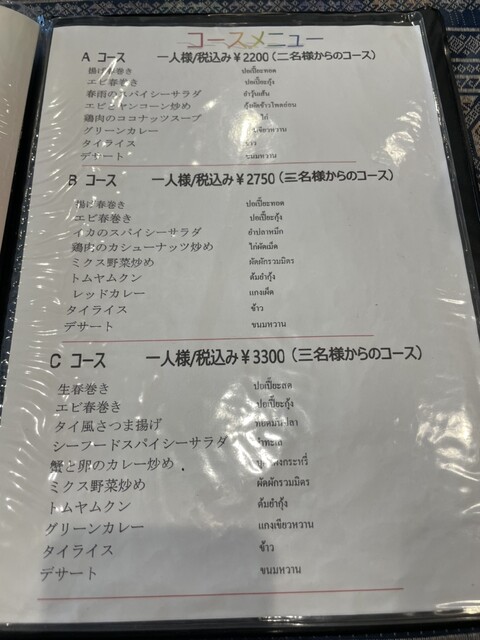 コースメニュー
A コース 一人様/税込み￥2200（二名様からのコース）
揚げ春巻き ปอเปี๊ยะทอด
エビ春巻き ปอเปี๊ยะกุ้ง
春雨のスパイシーサラダ ยำวุ้นเส้น
エビとヤンコーン炒め กุ้งผัดข้าวโพดอ่อน
鶏肉のココナッツスープ ไก่
グリーンカレー เขียวหวาน
タイライス ข้าว
デザート ขนมหวาน
B コース 一人様/税込み￥2750（三名様からのコース）
揚げ春巻き ปอเปี๊ยะทอด
エビ春巻き ปอเปี๊ยะกุ้ง
イカのスパイシーサラダ ยำปลาหมึก
鶏肉のカシューナッツ炒め ไก่ผัดเม็ด
ミクス野菜炒め ผัดผักรวมมิตร
トムヤムクン ต้มยำกุ้ง
レッドカレー แกงเผ็ด
タイライス ข้าว
デザート ขนมหวาน
C コース 一人様/税込み￥3300（三名様からのコース）
生春巻き ปอเปี๊ยะสด
エビ春巻き ปอเปี๊ยะกุ้ง
タイ風さつま揚げ
シーフードスパイシーサラダ
蟹と卵のカレー炒め
ミクス野菜炒め ผัดผักรวมมิตร
トムヤムクン ต้มยำกุ้ง
グリーンカレー แกงเขียวหวาน
タイライス ข้าว
デザート ขนมหวาน